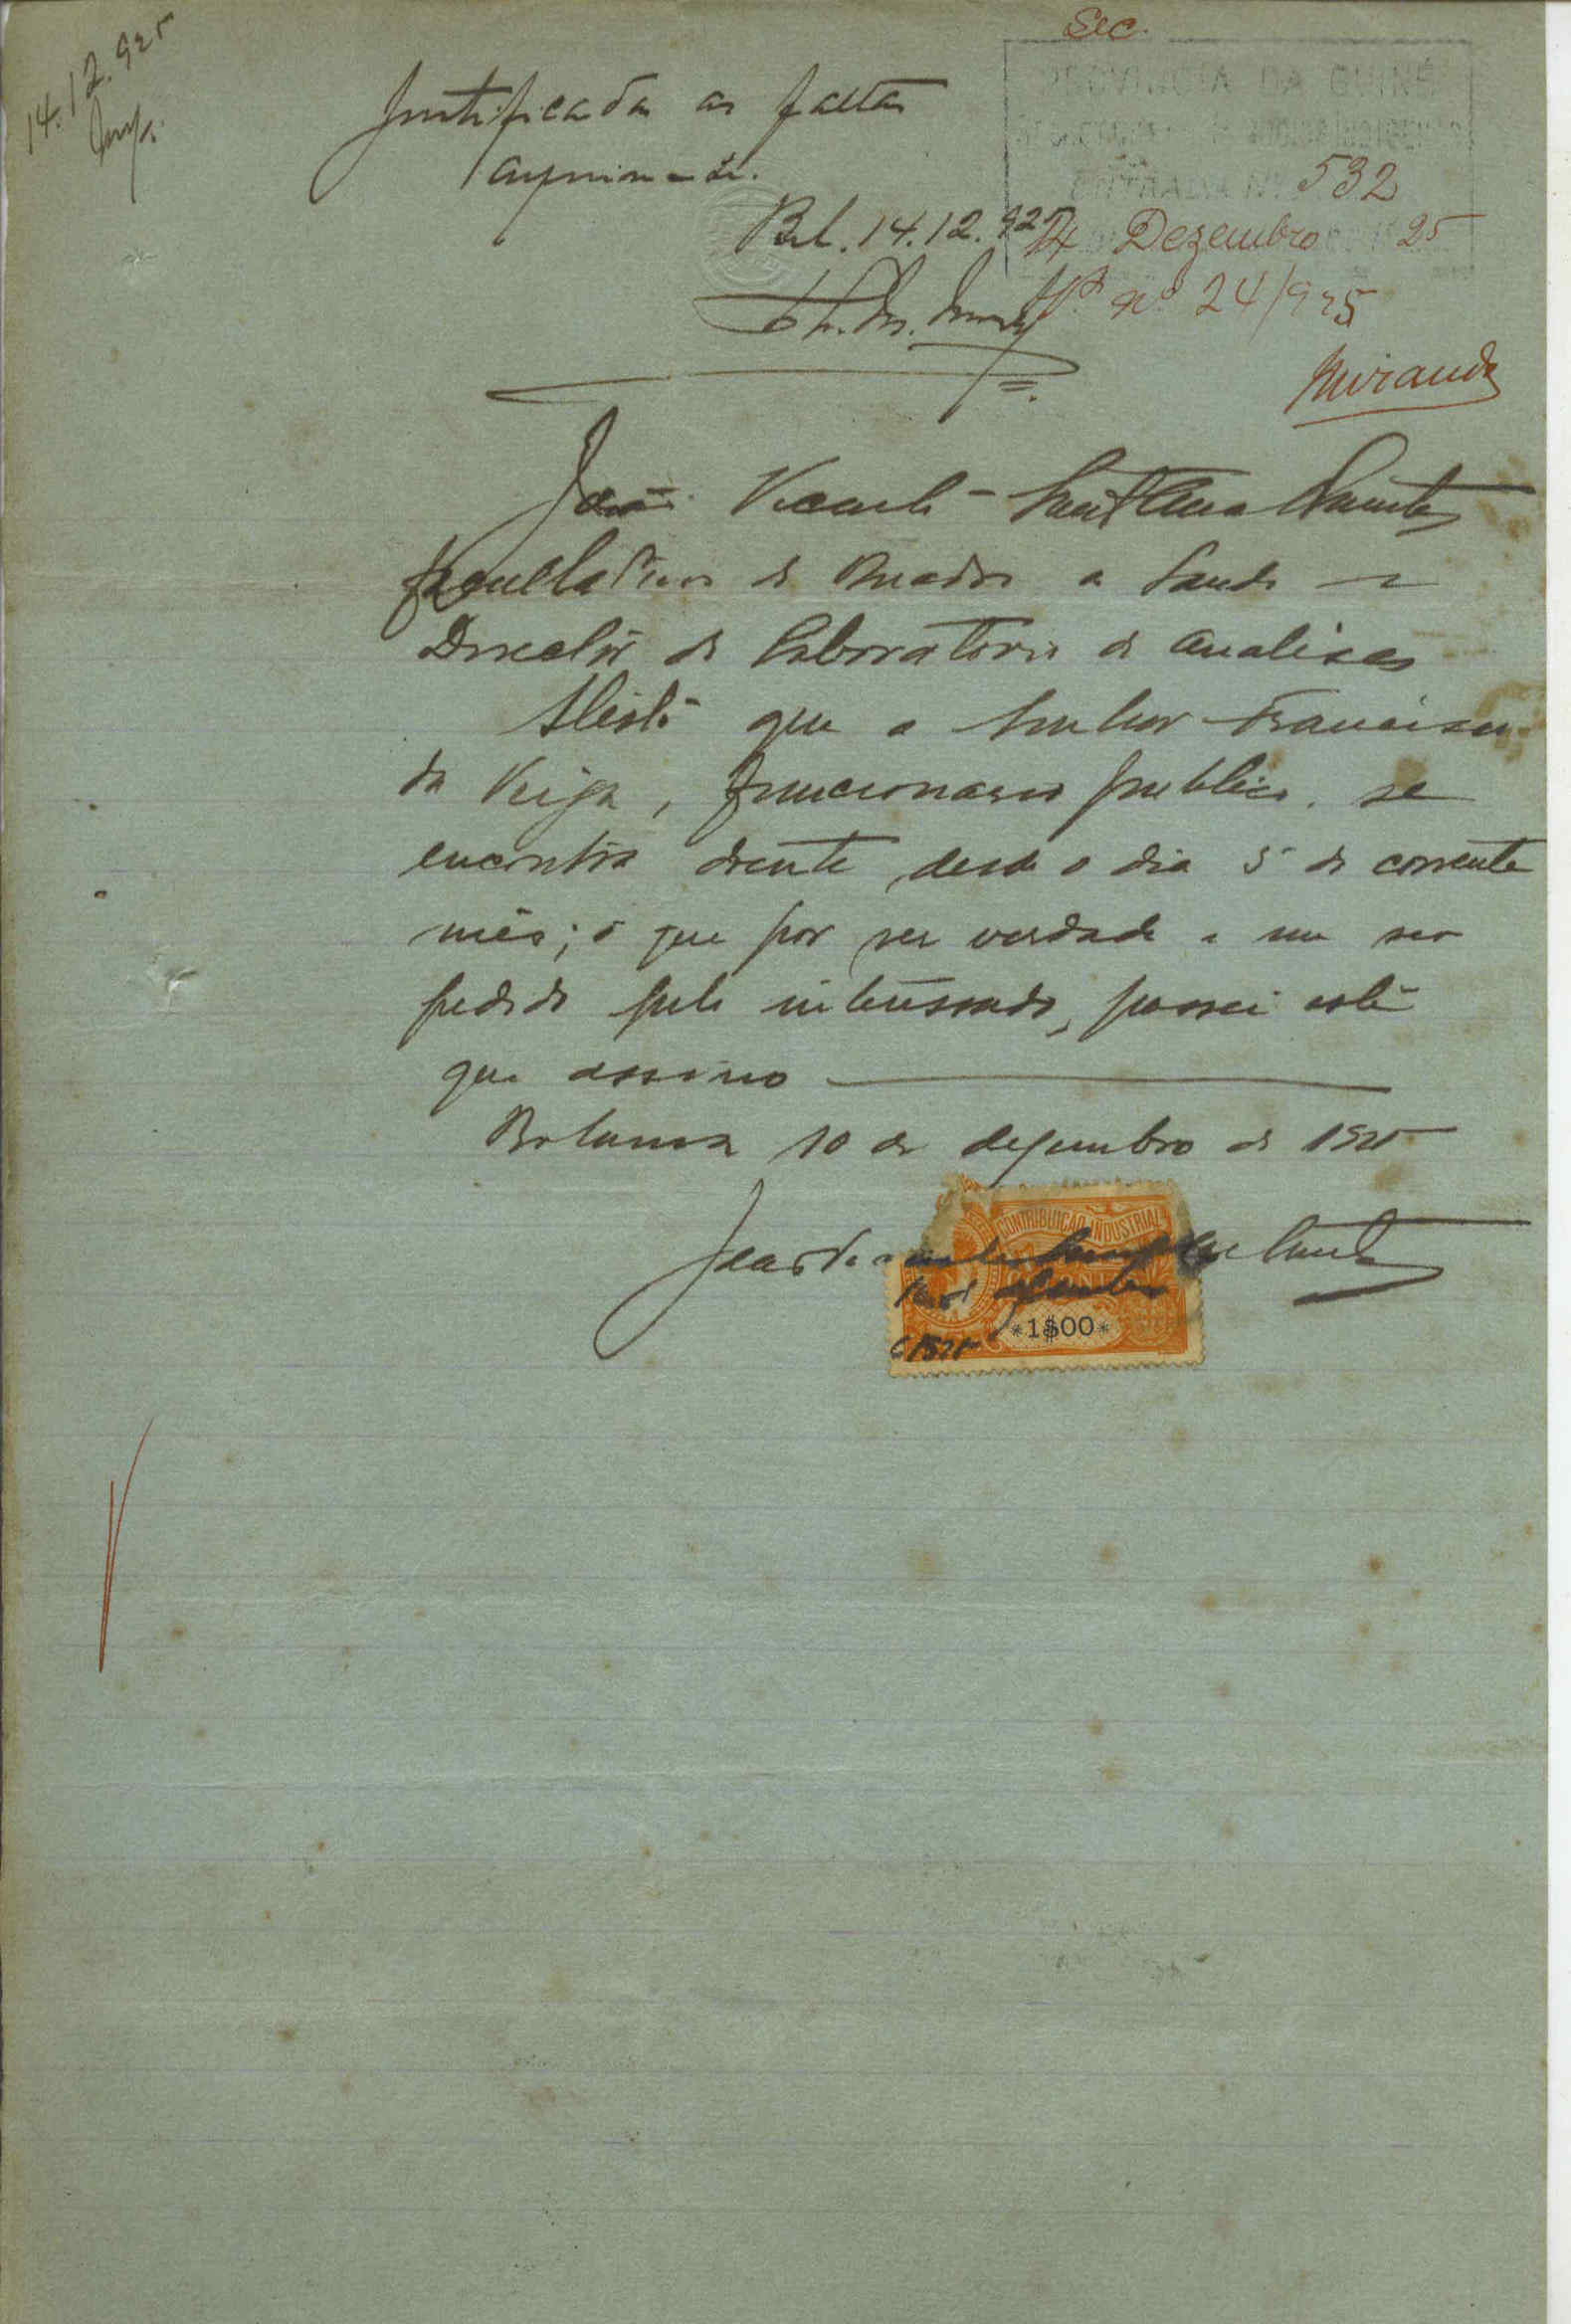 Sec.
14.12.925
Justificadas as faltas
PROVINCIA DA GUINÉ
ENTRADA Nº 532
Bol. 14.12.925
14 Dezembro 25
Pº nº 24/925
Miranda
João Vicente Sant'Ana Barreto
facultativo do Quadro de Saude e
Director do Laboratorio de Analises
Atesto que o senhor Francisco
da Veiga, funcionario publico, se
encontra doente desde o dia 5 do corrente
mês; o que por ser verdade e me ser
pedido pelo interessado, passei este
que assino
Bolama 10 de dezembro de 1925
CONTRIBUIÇÃO INDUSTRIAL
*1$00*
1925